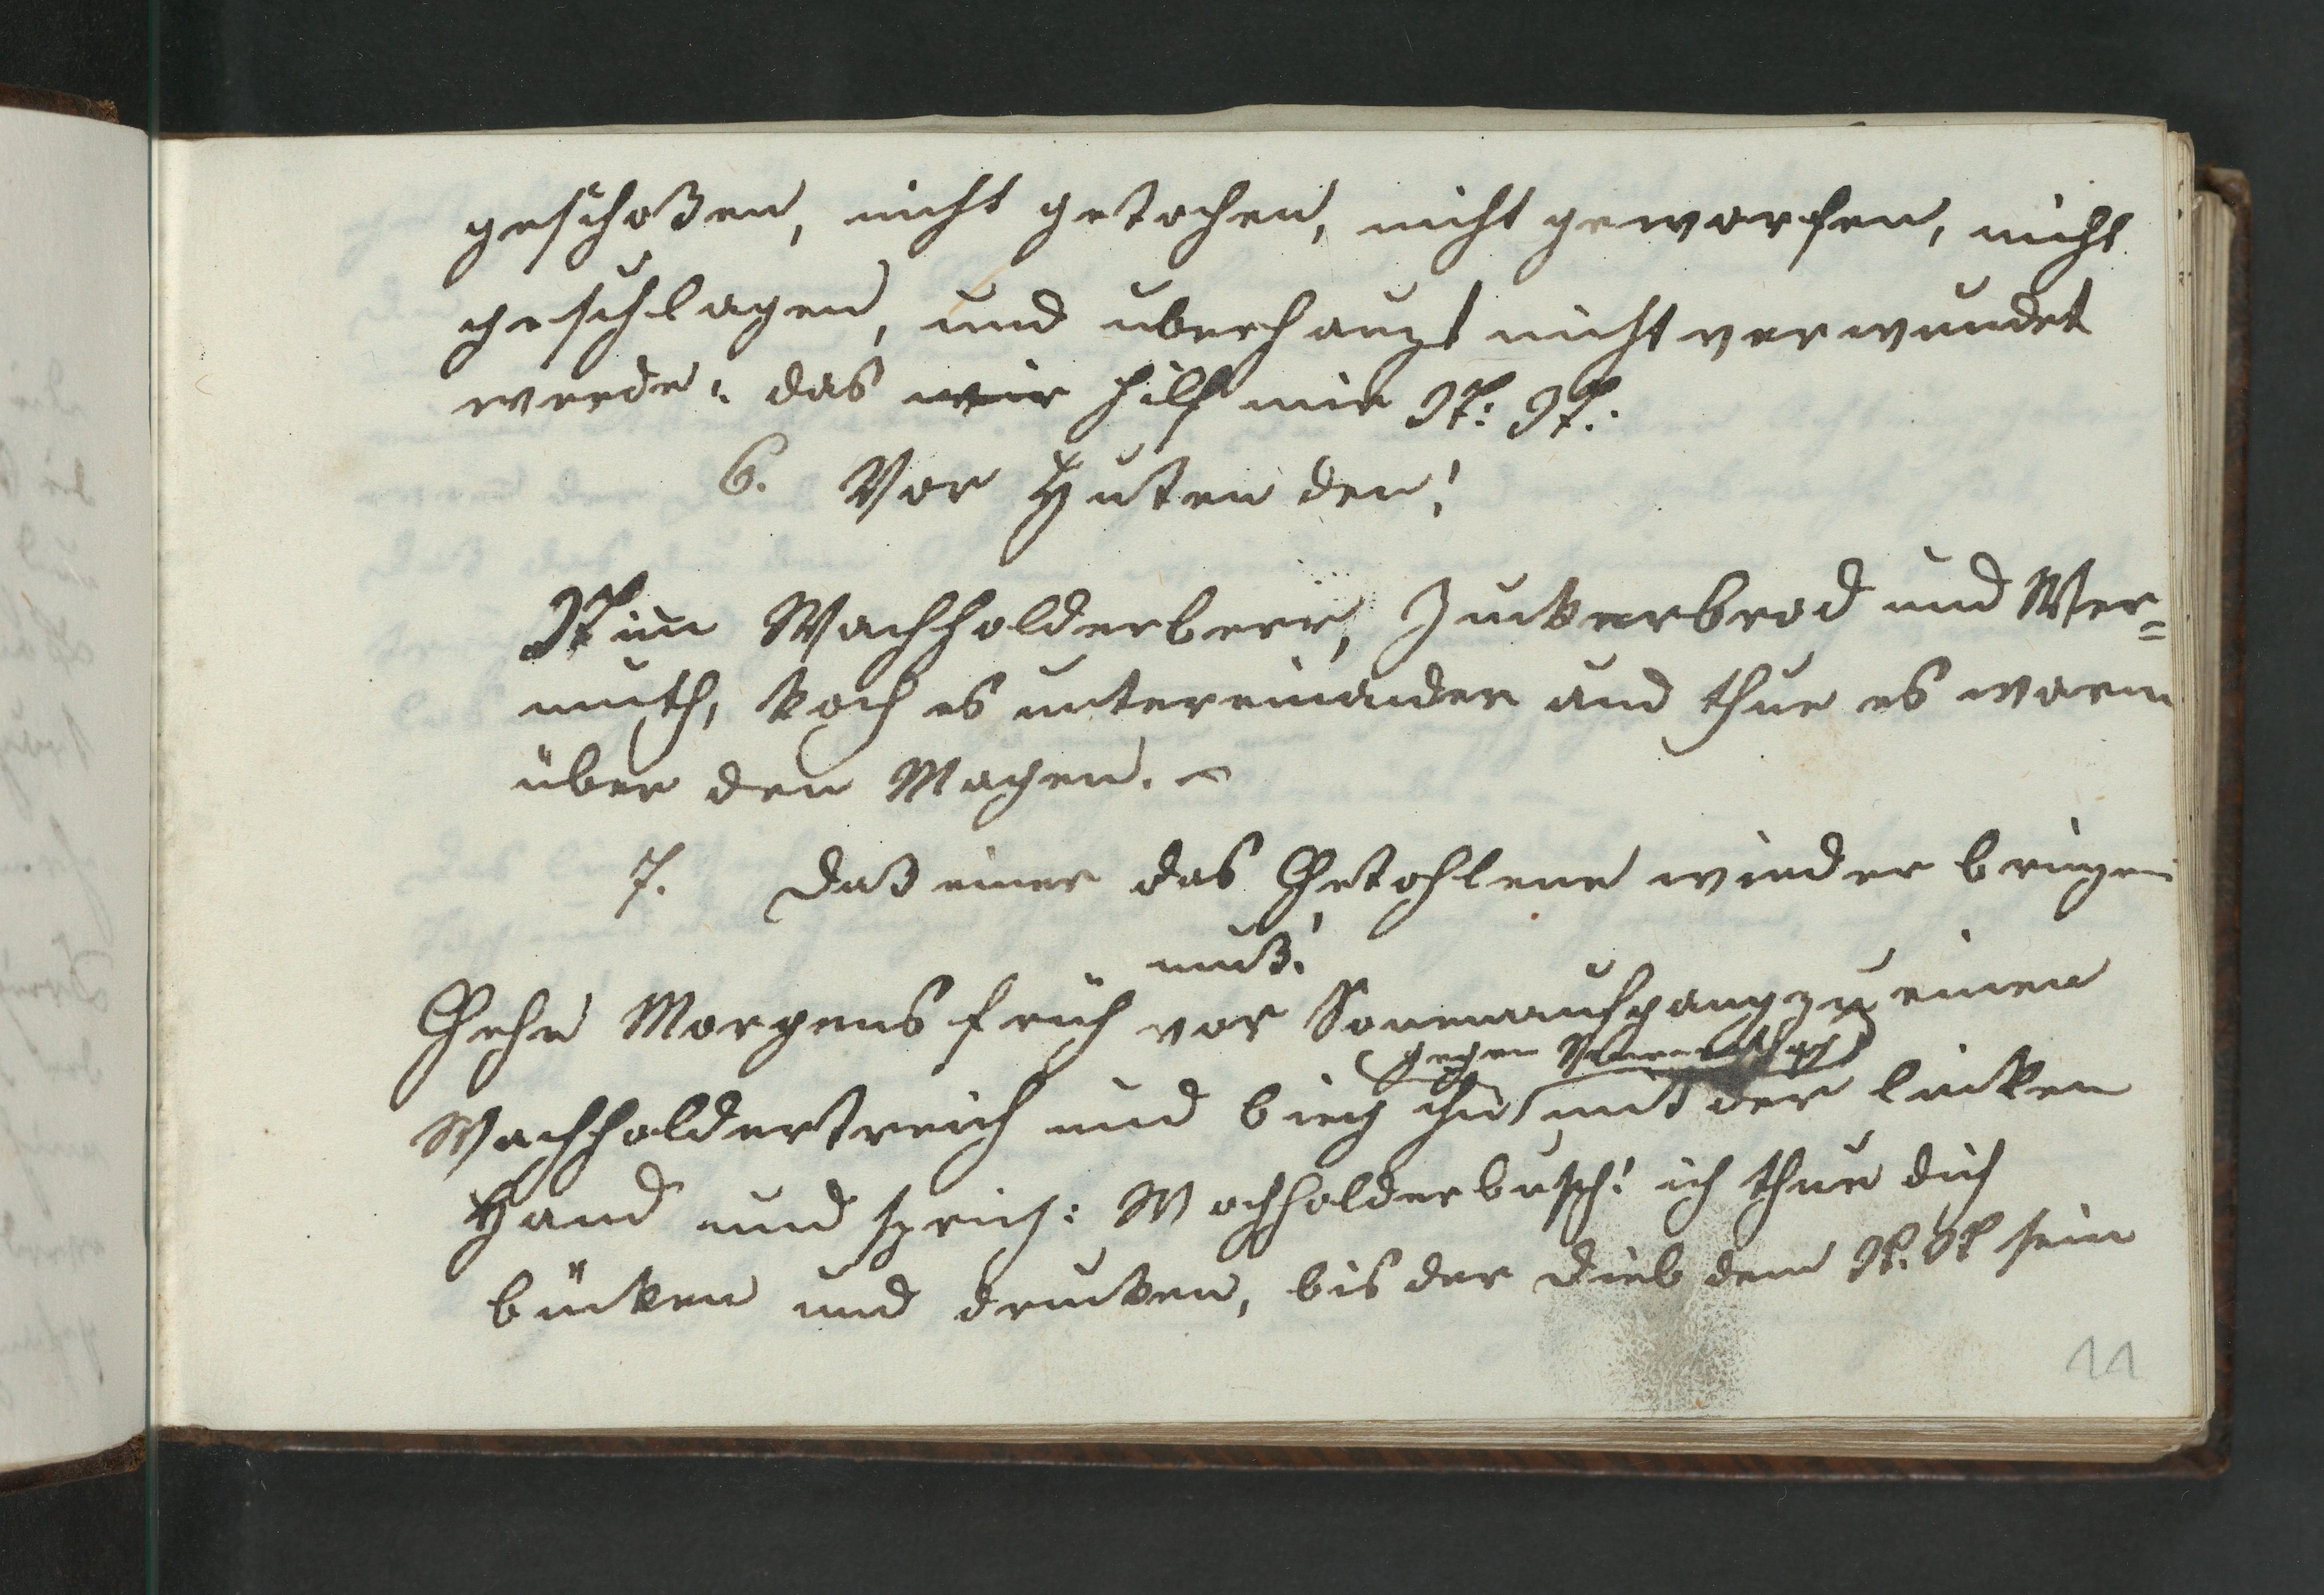 geschoßen, nicht gestochen, nicht geworfen, nicht
geschlagen, und uberhaupt nicht verwundet
werde: das wir hilf mir N: N:
6. Vor Husten den!
Nim Wachholderberr, Zuckerbrod und Wer=
muth, koch es untereinander und thue es warm
über den Magen. –
7. Daß einer das Gestohlene wieder bringen
muß!
Gehe Morgens früh vor Sonenaufgang zu einen
gegen
Wachholderstreich und bieg ihn mit der linken
Hand und sprich: Wachholderbusch! ich thue dich
bücken und drucken, bis der Dieb dem N. N sein
11